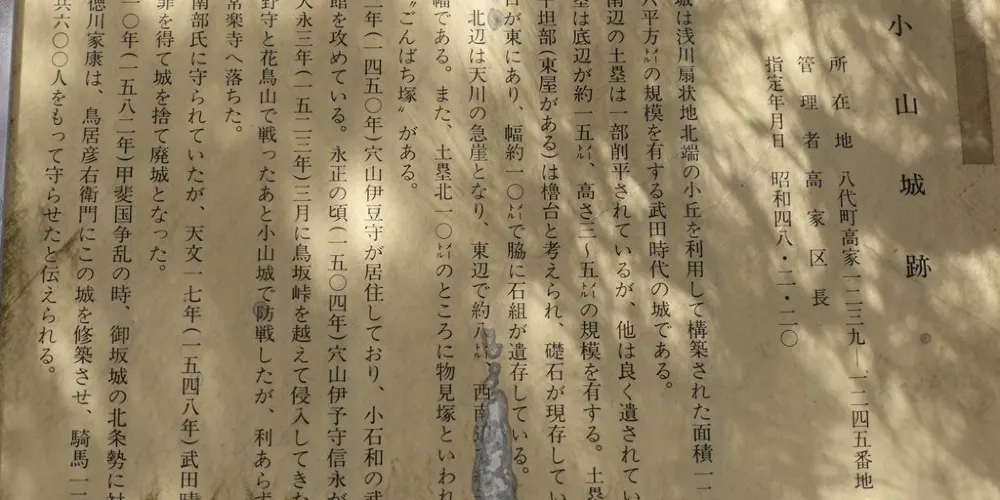 小山城跡
所在地 八代町高家一二三九―一二四五番地
管理者 高家区長
指定年月日 昭和四八・二・二〇
城は浅川扇状地北端の小丘を利用して構築された面積一
平方メートルの規模を有する武田時代の城である。
南辺の土塁は一部削平されているが、他は良く遺されてい
塁は底辺が約一五メートル、高さ三〜五メートルの規模を有する。土塁
平坦部(東屋がある)は櫓台と考えられ、礎石が現存してい
口が東にあり、幅約一〇メートルで脇に石組が遺存している。
北辺は天川の急崖となり、東辺で約八メートル、西南辺
幅である。また、土塁北一〇メートルのところに物見塚といわれ
〝ごんばち塚〟がある。
二年(一四五〇年)穴山伊豆守が居住しており、小石和の武
館を攻めている。永正の頃(一五〇四年)穴山伊予守信永が
大永三年(一五二三年)三月に鳥坂峠を越えて侵入してきた
野守と花鳥山で戦ったあと小山城で防戦したが、利あらず
常楽寺へ落ちた。
南部氏に守られていたが、天文一七年(一五四八年)武田晴
罪を得て城を捨て廃城となった。
一〇年(一五八二年)甲斐国争乱の時、御坂城の北条勢に対
徳川家康は、鳥居彦右衛門にこの城を修築させ、騎馬一
兵六〇〇人をもって守らせたと伝えられる。